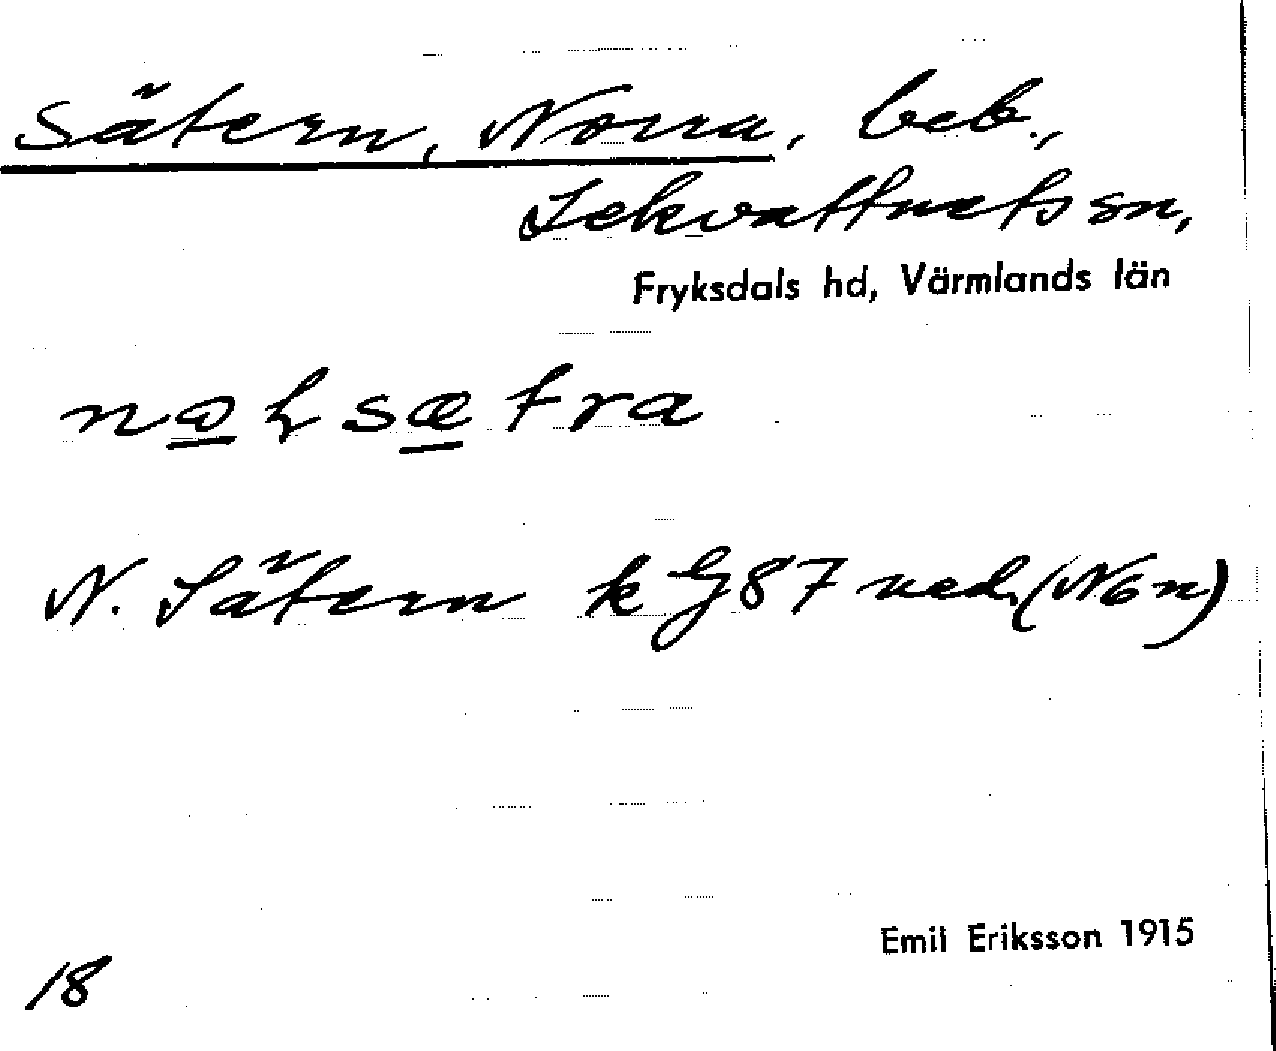 Sätern, Norra, beb.,
Lekvattnets sn,
Fryksdals hd, Värmlands län
N. Sätern k G87 ned. (Nön)
Emil Eriksson 1915
18